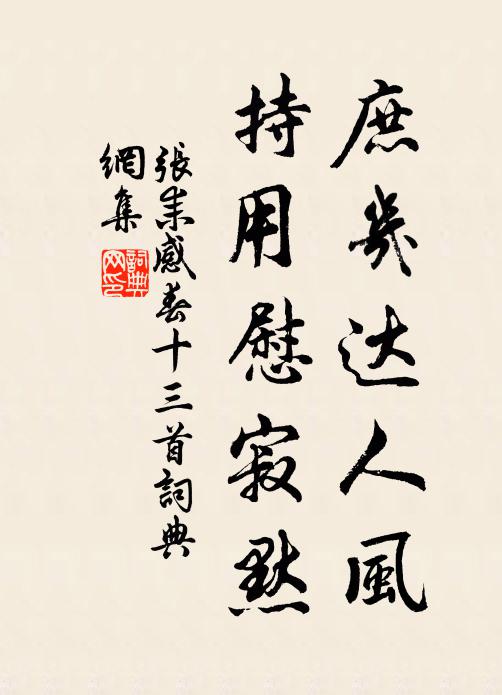 庶幾达人風
持用慰寂默
張耒感春十三首詞典
網集
詞典
网印